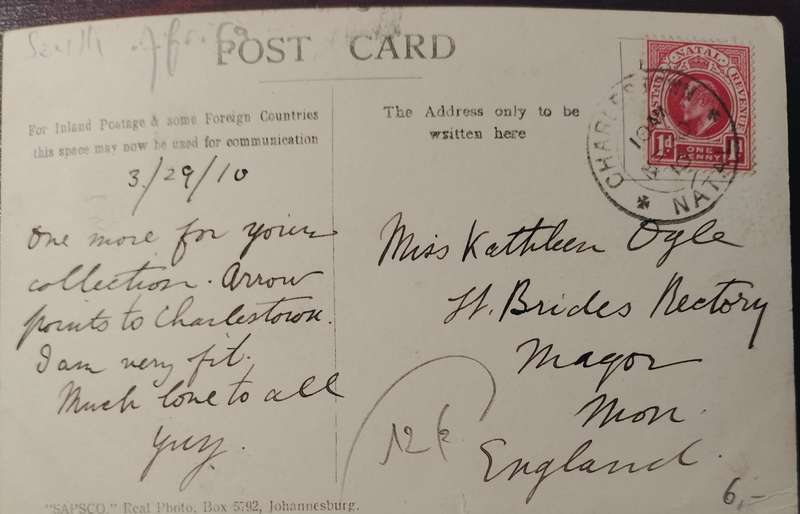 South Africa
POST CARD
For Inland Postage & some Foreign Countries
this space may now be used for communication
The Address only to be
written here
NATAL
POSTAGE
REVENUE
1d
ONE
PENNY
1d
CHARLESTOWN
10 AM
NATAL
3/29/10
One more for your
collection. Arrow
points to Charlestown.
I am very fit.
Much love to all
Guy.
Miss Kathleen Ogle
St. Brides Rectory
Magor
Mon.
England.
6,-
"SAPSCO," Real Photo, Box 5792, Johannesburg.